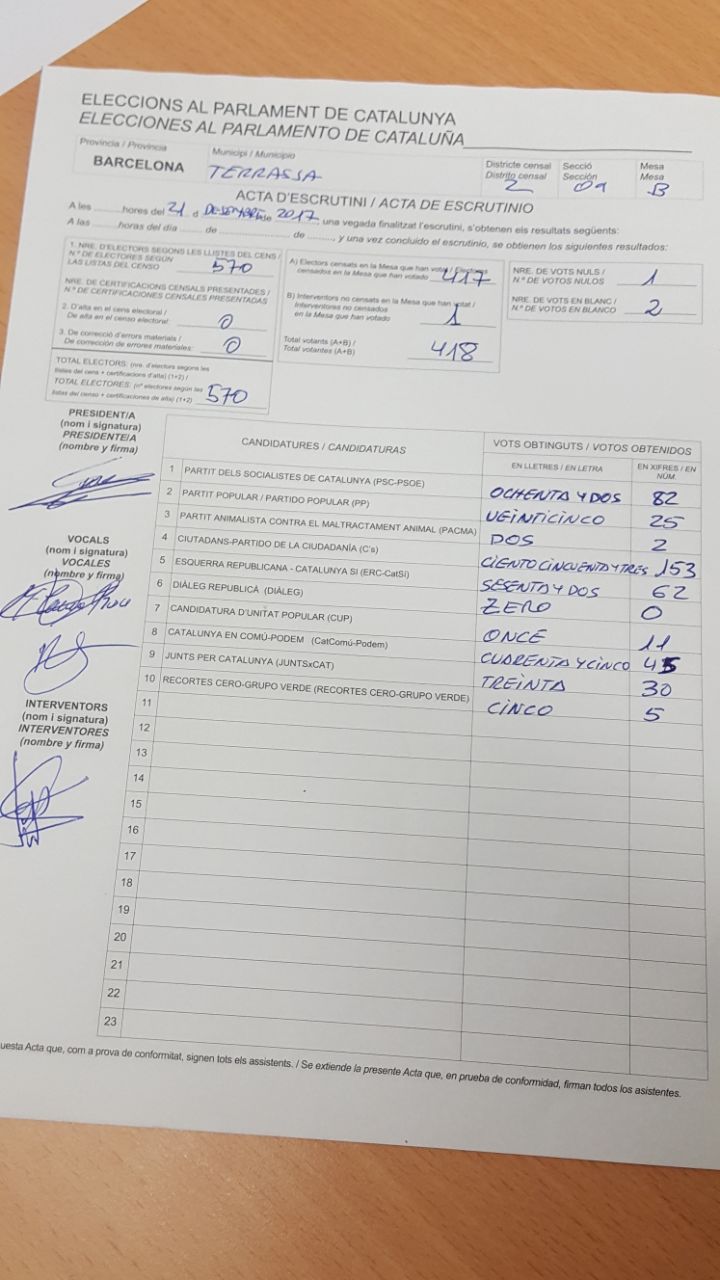 ELECCIONS AL PARLAMENT DE CATALUNYA
ELECCIONES AL PARLAMENTO DE CATALUÑA
Provincia / Provincia
BARCELONA
Municipi / Municipio
TERRASSA
Districte censal
Distrito censal
2
Secció
Sección
09
Mesa
Mesa
B
ACTA D'ESCRUTINI / ACTA DE ESCRUTINIO
A les ......... hores del 21 d de 2017, una vegada finalitzat l'escrutini, s'obtenen els resultats següents:
A las ......... horas del día ......... de ......... de ........., y una vez concluido el escrutinio, se obtienen los siguientes resultados:
1. NRE. D'ELECTORS SEGONS LES LLISTES DEL CENS /
N.º DE ELECTORES SEGÚN
LAS LISTAS DEL CENSO
570
NRE. DE CERTIFICACIONS CENSALS PRESENTADES /
N.º DE CERTIFICACIONES CENSALES PRESENTADAS
2. D'alta en el cens electoral /
De alta en el censo electoral:
0
3. De correcció d'errors materials /
De corrección de errores materiales:
0
TOTAL ELECTORS: (nre. d'electors segons les
llistes del cens + certificacions d'alta) (1+2) /
TOTAL ELECTORES: (nº electores según las
listas del censo + certificaciones de alta) (1+2)
570
A) Electors censats en la Mesa que han votat / Electores
censados en la Mesa que han votado
417
B) Interventors no censats en la Mesa que han votat /
Interventores no censados
en la Mesa que han votado
1
Total votants (A+B) /
Total votantes (A+B)
418
NRE. DE VOTS NULS /
N.º DE VOTOS NULOS
1
NRE. DE VOTS EN BLANC /
N.º DE VOTOS EN BLANCO
2
PRESIDENT/A
(nom i signatura)
PRESIDENTE/A
(nombre y firma)
VOCALS
(nom i signatura)
VOCALES
(nombre y firma)
INTERVENTORS
(nom i signatura)
INTERVENTORES
(nombre y firma)
CANDIDATURES / CANDIDATURAS
VOTS OBTINGUTS / VOTOS OBTENIDOS
EN LLETRES / EN LETRA
EN XIFRES / EN
NÚM.
1 PARTIT DELS SOCIALISTES DE CATALUNYA (PSC-PSOE) OCHENTA Y DOS 82
2 PARTIT POPULAR / PARTIDO POPULAR (PP) VEINTICINCO 25
3 PARTIT ANIMALISTA CONTRA EL MALTRACTAMENT ANIMAL (PACMA) DOS 2
4 CIUTADANS-PARTIDO DE LA CIUDADANÍA (C's) CIENTO CINCUENTA Y TRES 153
5 ESQUERRA REPUBLICANA - CATALUNYA SI (ERC-CatSí) SESENTA Y DOS 62
6 DIÀLEG REPUBLICÀ (DIÀLEG) ZERO 0
7 CANDIDATURA D'UNITAT POPULAR (CUP) ONCE 11
8 CATALUNYA EN COMÚ-PODEM (CatComú-Podem) CUARENTA Y CINCO 45
9 JUNTS PER CATALUNYA (JUNTSxCAT) TREINTA 30
10 RECORTES CERO-GRUPO VERDE (RECORTES CERO-GRUPO VERDE) CINCO 5
11
12
13
14
15
16
17
18
19
20
21
22
23
Acta que, com a prova de conformitat, signen tots els assistents. / Se extiende la presente Acta que, en prueba de conformidad, firman todos los asistentes.